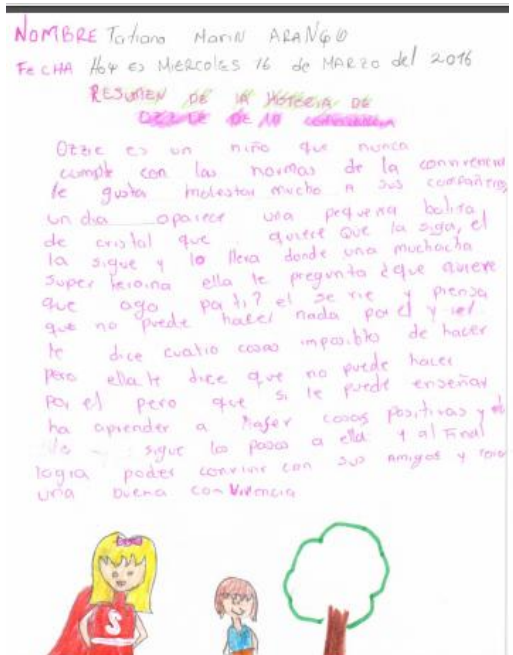 NOMBRE Tatiana Marin ARANGO
FECHA Hoy es MIERCOLES 16 de MARZO del 2016
RESUMEN DE LA HISTORIA DE
OZZIE DE LA CONVIVENCIA
Ozzie es un niño que nunca
cumple con las normas de la convivencia
le gusta molestar mucho a sus compañeros,
un dia aparece una pequeña bolita
de cristal que quiere que la siga, el
la sigue y lo lleva donde una muchacha
super heroina ella le pregunta ¿que quiere
que ago pa ti? el se rie y piensa
que no puede hacer nada por el y
le dice cuatro cosas imposible de hacer
pero ella le dice que no puede hacer
por el pero que si le puede enseñar
ha aprender a haser cosas positivas y el
sigue los pasos a ella y al Final
logra poder convivir con sus amigos y
una buena conVivencia
S